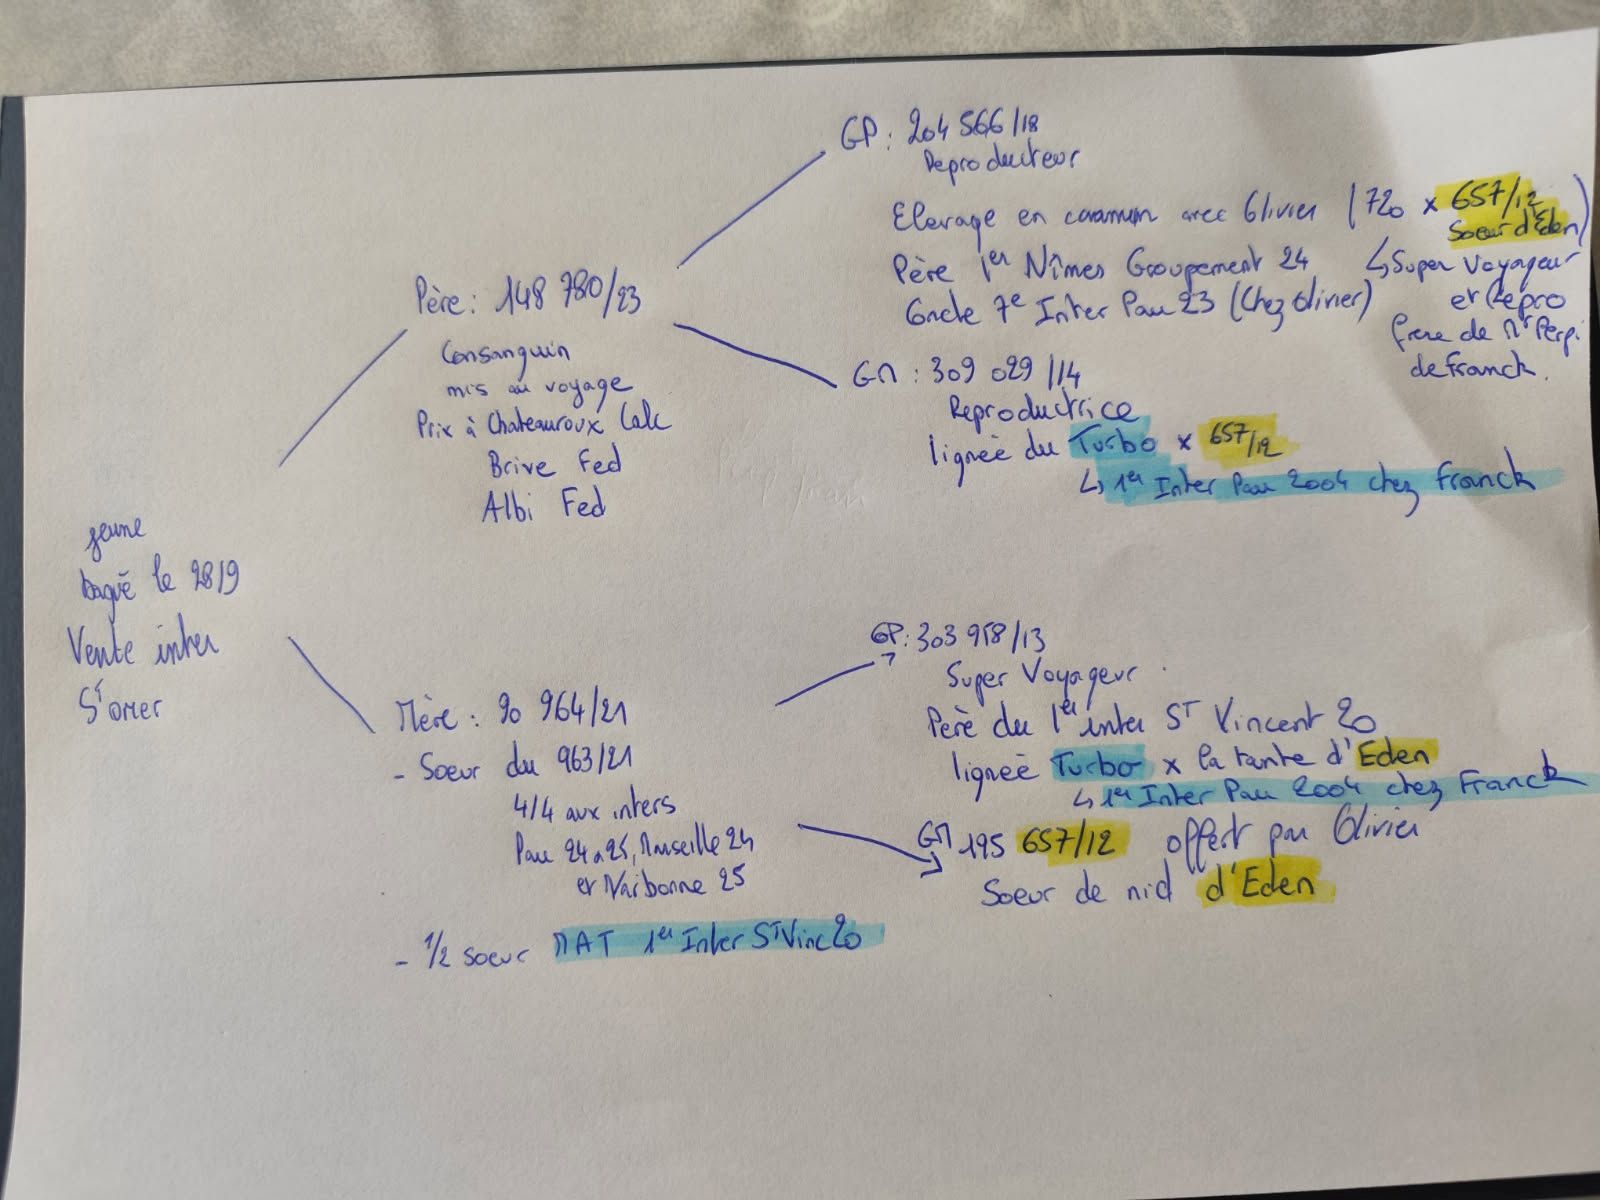 jeune
bagué le 28/9
Vente inter
S^T OMER
Père : 148 780/23
Consanguin
mis au voyage
Prix à Chateauroux Calc
Brive Fed
Albi Fed
GP : 204 566/18
Reproducteur
Elevage en commun avec Olivier (720 x 657/12
Soeur d'Eden)
Père 1er Nîmes Groupement 24
↳ Super Voyageur
et Repro
Oncle 7e Inter Pau 23 (Chez Olivier)
frère de Mr Perpi.
de Franck.
GM : 309 029/14
Reproductrice
lignée du Turbo x 657/12
↳ 1er Inter Pau 2004 chez Franck
Mère : 90 964/21
- Soeur du 963/21
4/4 aux inters
Pau 24 25, Marseille 24
et Narbonne 25
- 1/2 soeur MAT 1er Inter S^T Vinc 20
GP : 303 958/13
Super Voyageur
Père du 1er inter S^T Vincent 20
lignée Turbo x la tante d'Eden
↳ 1er Inter Pau 2004 chez Franck
GM 195 657/12 offert par Olivier
Soeur de nid d'Eden